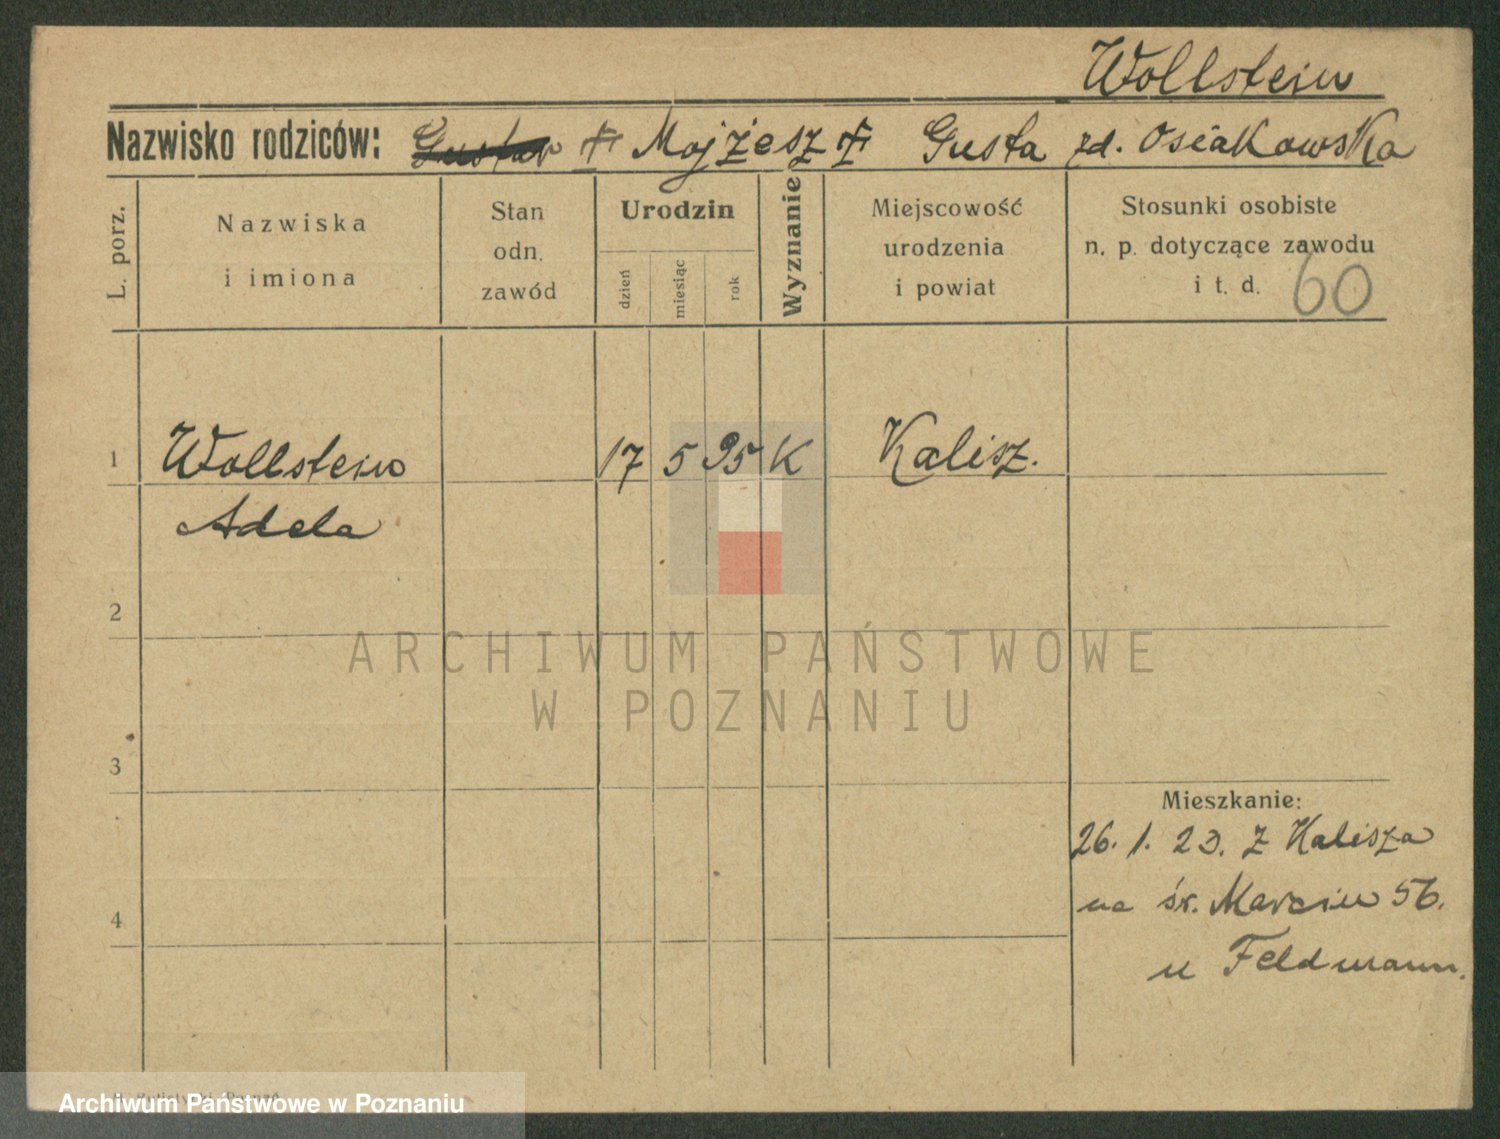 Wollstein
Nazwisko rodziców: Gustaw Mojżesz Gusta zd. Osiakowska
L. porz.
Nazwiska
i imiona
Stan
odn.
zawód
Urodzin
dzień
miesiąc
rok
Wyznanie
Miejscowość
urodzenia
i powiat
Stosunki osobiste
n. p. dotyczące zawodu
i t. d.
60
1 Wollstein 17 5 95 K Kalisz.
Adela
2
ARCHIWUM PAŃSTWOWE
W POZNANIU
3
Mieszkanie:
26. 1. 23. z Kalisza
na św. Marcin 56.
4
u Feldmann.
Archiwum Państwowe w Poznaniu